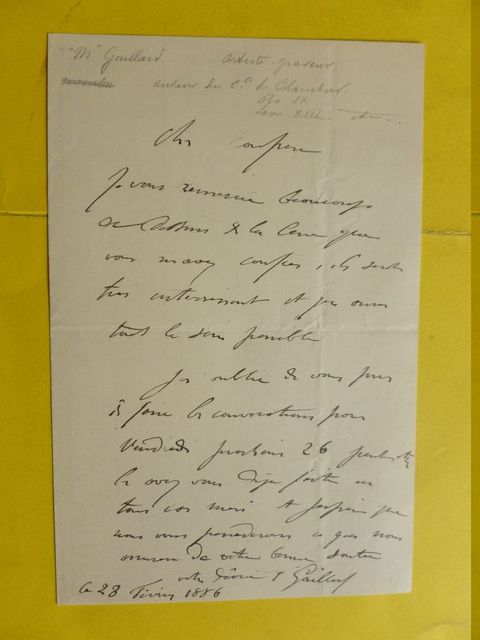 Mr Gaillard. artiste-graveur
auteur du Cte de Chambord.
Pie IX
Léon XIII.
Cher Confrère
Je vous remercie beaucoup
de dessins de la Cène que
vous m'avez confiés, ils sont
très intéressant et j'en aurai
tout le soin possible
J'ai oublié de vous prier
de faire les convocations pour
Vendredi prochain 26 peut-être
les avez vous déjà faite au
tous cas merci et j'espère que
nous vous posséderons ce que nous
de votre bonne santé
votre dévoué F Gaillard
ce 23 Février 1886